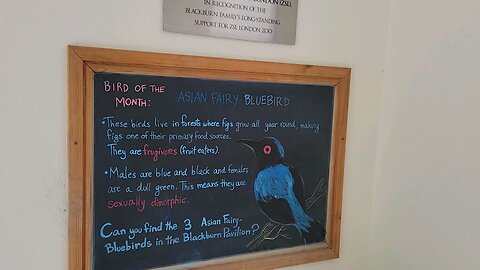 LONDON (ZSL)
IN RECOGNITION OF THE
BLACKBURN FAMILY'S LONG-STANDING
SUPPORT FOR ZSL LONDON ZOO
BIRD OF THE
MONTH:
ASIAN FAIRY BLUEBIRD
•These birds live in forests where figs grow all year round, making
figs one of their primary food sources.
They are frugivores (fruit eaters).
• Males are blue and black and females
are a dull green. This means they are
sexually dimorphic.
Can you find the 3 Asian Fairy-
Bluebirds in the Blackburn Pavilion?